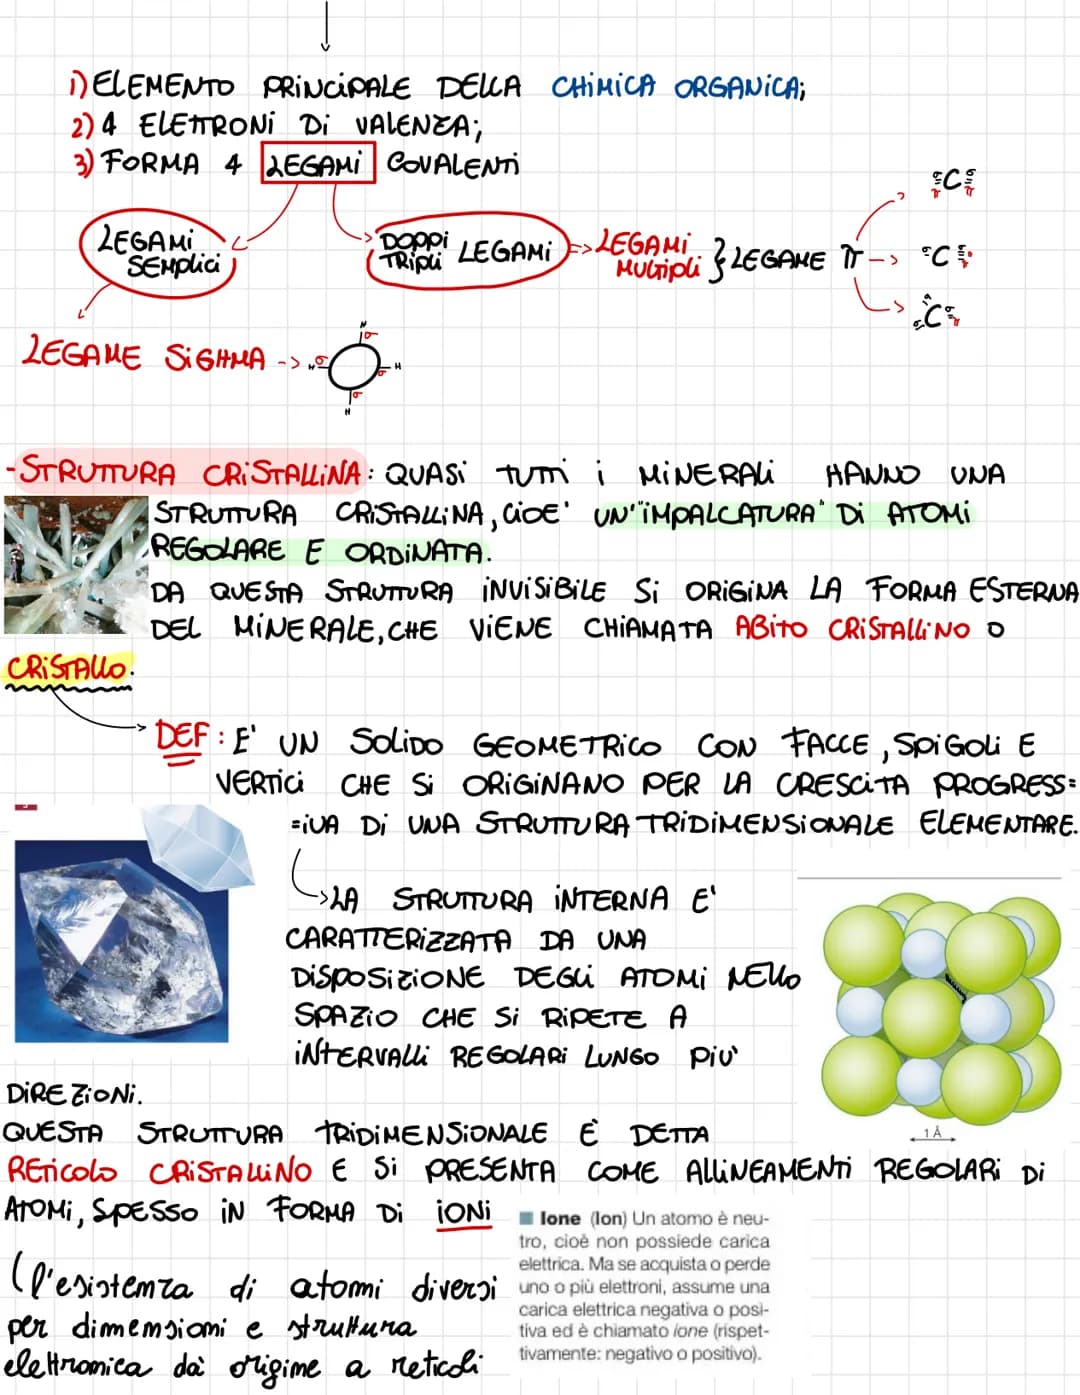 1) ELEMENTO PRINCIPALE DELLA CHIMICA ORGANICA;
2) 4 ELETTRONI DI VALENZA;
3) FORMA 4 LEGAMI COVALENTI
LEGAMI SEMPLICI
DOPPI TRIPLI LEGAMI => LEGAMI MULTIPLI } LEGAME π -->
C
C
C
LEGAME SIGHMA -->
H σ
H σ
σ H
σ H
-STRUTTURA CRISTALLINA: QUASI TUTTI I MINERALI HANNO UNA
STRUTTURA CRISTALLINA, CIOE' UN'"IMPALCATURA" DI ATOMI
REGOLARE E ORDINATA.
DA QUESTA STRUTTURA INVISIBILE SI ORIGINA LA FORMA ESTERNA
DEL MINERALE, CHE VIENE CHIAMATA ABITO CRISTALLINO O
CRISTALLO.
DEF: E' UN SOLIDO GEOMETRICO CON FACCE, SPIGOLI E
VERTICI CHE SI ORIGINANO PER LA CRESCITA PROGRESS=
=IVA DI UNA STRUTTURA TRIDIMENSIONALE ELEMENTARE.
LA STRUTTURA INTERNA E'
CARATTERIZZATA DA UNA
DISPOSIZIONE DEGLI ATOMI NELLO
SPAZIO CHE SI RIPETE A
INTERVALLI REGOLARI LUNGO PIU'
DIREZIONI.
1 Å
QUESTA STRUTTURA TRIDIMENSIONALE È DETTA
RETICOLO CRISTALLINO E SI PRESENTA COME ALLINEAMENTI REGOLARI DI
ATOMI, SPESSO IN FORMA DI IONI
(l'esistenza di atomi diversi
per dimensioni e struttura
elettronica dà origine a reticoli
Ione (Ion) Un atomo è neu-
tro, cioè non possiede carica
elettrica. Ma se acquista o perde
uno o più elettroni, assume una
carica elettrica negativa o posi-
tiva ed è chiamato ione (rispet-
tivamente: negativo o positivo).